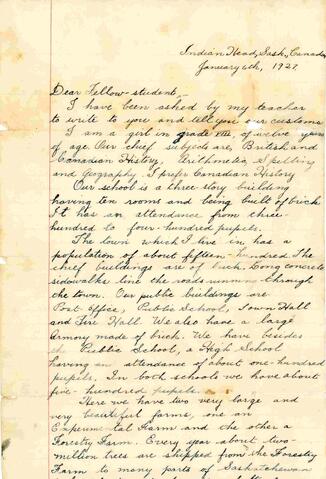 Indian Head, Sask., Canada
January 6th, 1927
Dear Fellow-student,-
I have been asked by my teacher
to write to you and tell you our customs
I am a girl in grade VIII, of twelve years
of age. Our chief subjects are, British and
Canadian History, Arithmetic, Spelling
and Geography. I prefer Canadian History
Our school is a three story building
having ten rooms and being built of brick.
It has an attendance from three-
hundred to four-hundred pupils.
The town which I live in, has a
population of about fifteen-hundred. The
chief buildings are of brick. Long concrete
sidewalks line the roads running through
the town. Our public buildings are
Post Office, Public School, Town Hall
and Fire Hall. We also have a large
Armory made of brick. We have besides
the Public School, a High School
having an attendance of about one-hundred
pupils. In both schools we have about
five-hundred pupils
Here we have two very large and
very beautiful farms, one an
Experimental Farm and the other a
Forestry Farm. Every year about two-
million trees are shipped from the Forestry
Farm to many parts of Saskatchewan